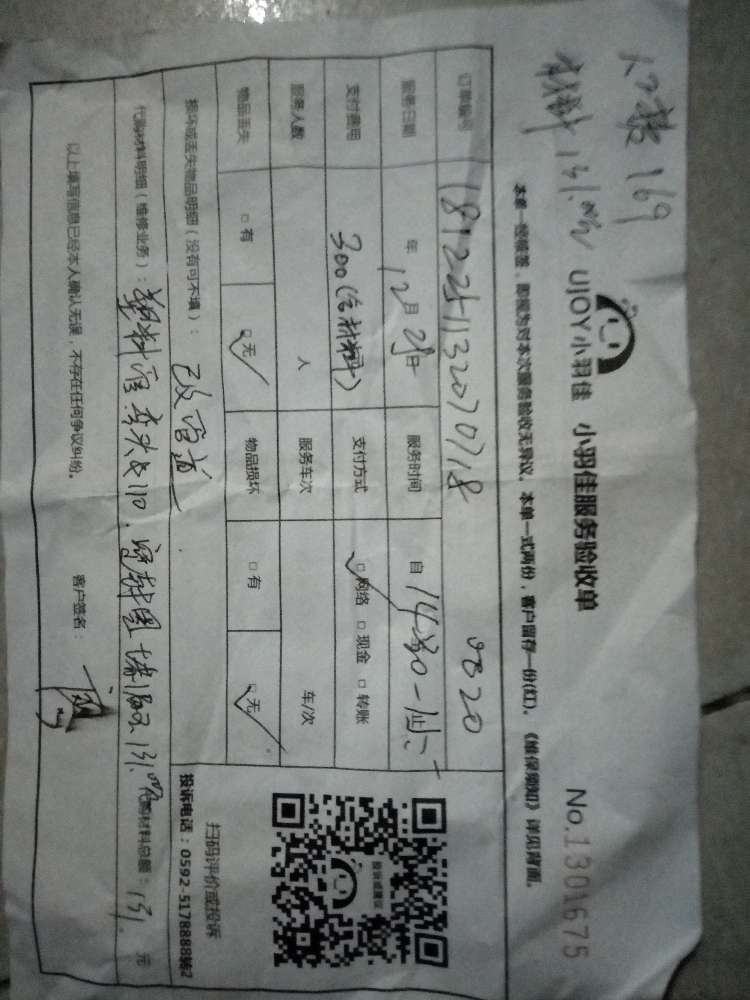 人工费169
材料131.00元
UJOY小羽佳 小羽佳服务验收单
No.1301675
本单一经签签,即视为对本次服务验收无异议。本单一式两份,客户留存一份(红)。《维保须知》详见背面。
订单编号 1812251132070718 0320
服务日期 年12月25日 服务时间 自14:30-
支付费用 300(含材料) 支付方式 ☑网络 □现金 □转账
服务人数 人 服务车次 车/次
物品丢失 □有 ☑无 物品损坏 □有 ☑无
损坏或丢失物品明细(没有可不填): 改管道
代购材料明细(维修业务): 塑料管 131.00 代购材料总额:131 元
以上填写信息已经本人确认无误,不存在任何争议纠纷。 客户签名:
扫码评价或投诉
投诉电话:0592-5178888转2